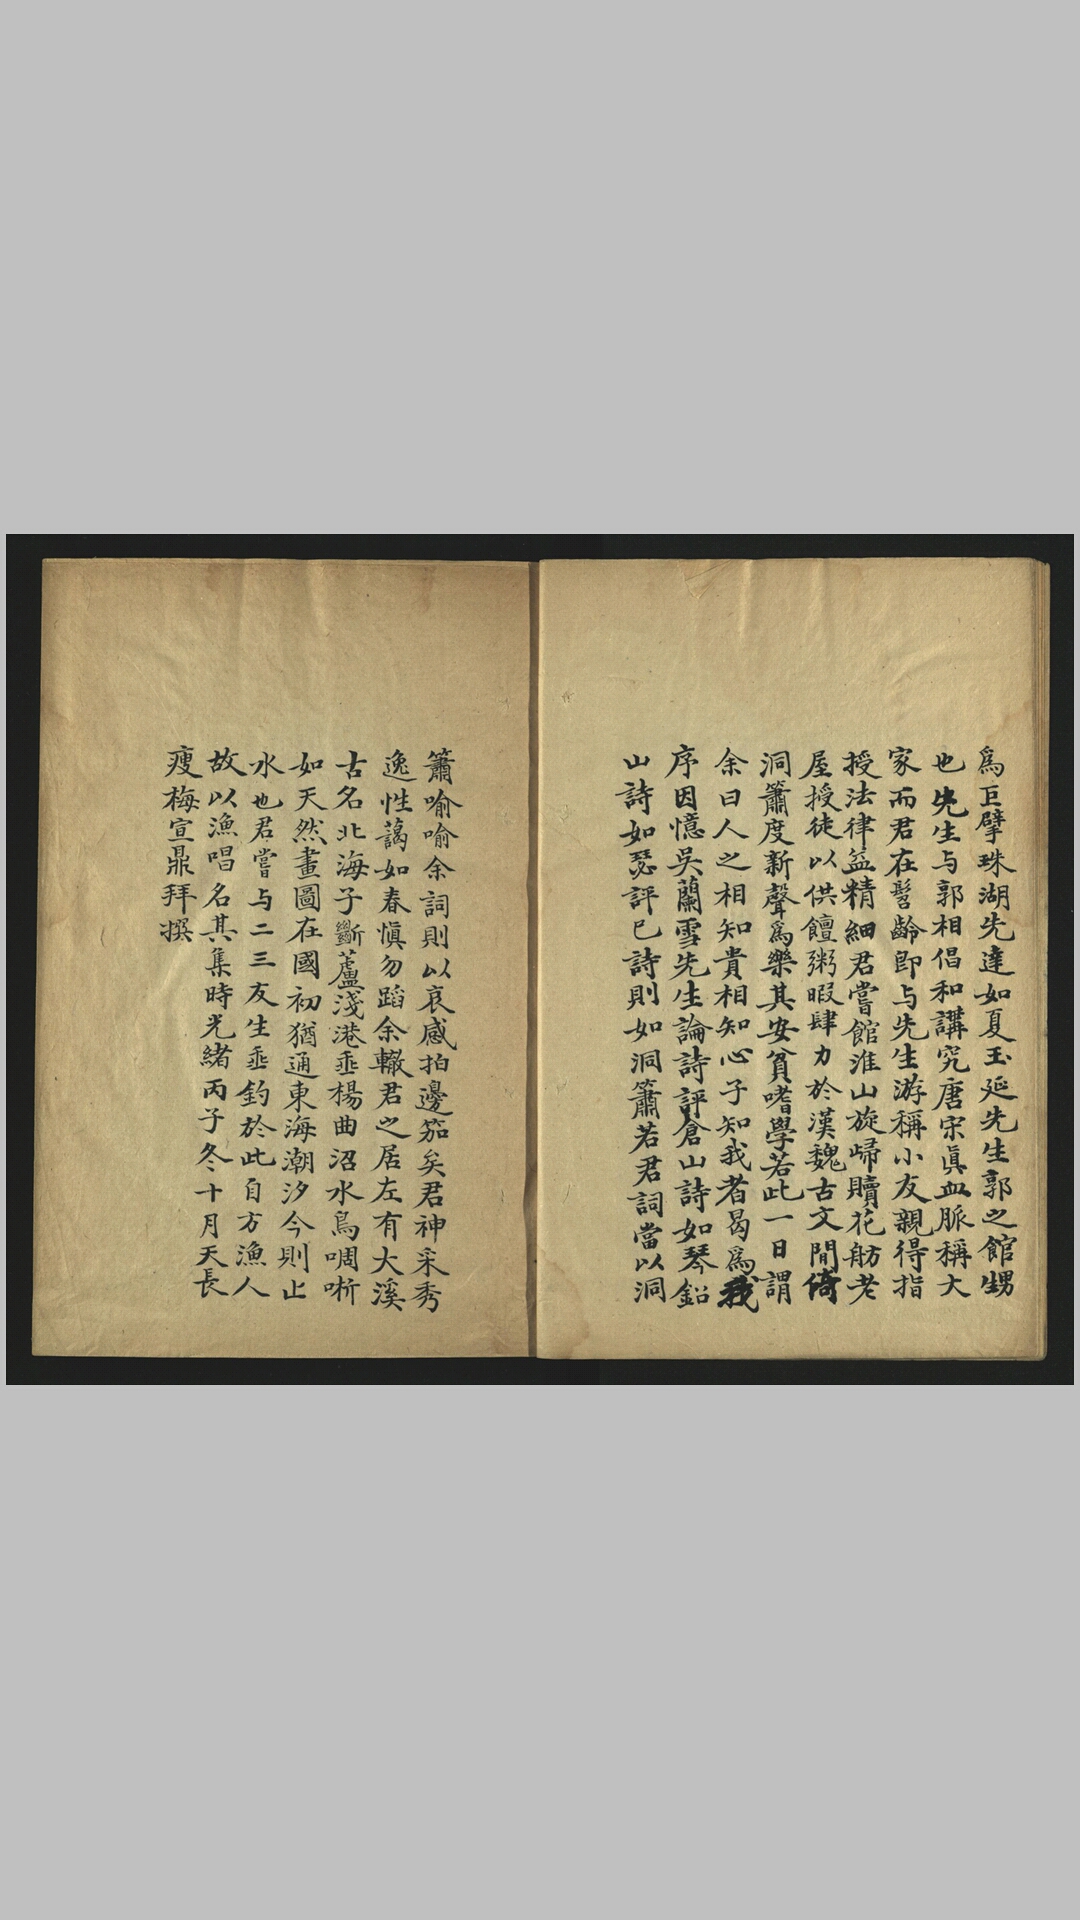 爲巨擘珠湖先達如夏玉延先生郭之館甥
也先生与郭相倡和講究唐宋眞血脈稱大
家而君在髫齡卽与先生游稱小友親得指
授法律益精細君嘗館淮山旋歸贖花舫老
屋授徒以供饘粥暇肆力於漢魏古文閒倚
洞簫度新聲爲樂其安貧嗜學若此一日謂
余曰人之相知貴相知心子知我者曷爲我
序因憶吳蘭雪先生論詩評倉山詩如琴鉛
山詩如瑟評已詩則如洞簫若君詞當以洞
簫喻喻余詞則以哀感拍邊笳矣君神采秀
逸性藹如春愼勿蹈余轍君之居左有大溪
古名北海子斷蘆淺港垂楊曲沼水鳥啁哳
如天然畫圖在國初猶通東海潮汐今則止
水也君嘗与二三友生垂釣於此自方漁人
故以漁唱名其集時光緒丙子冬十月天長
瘦梅宣鼎拜撰